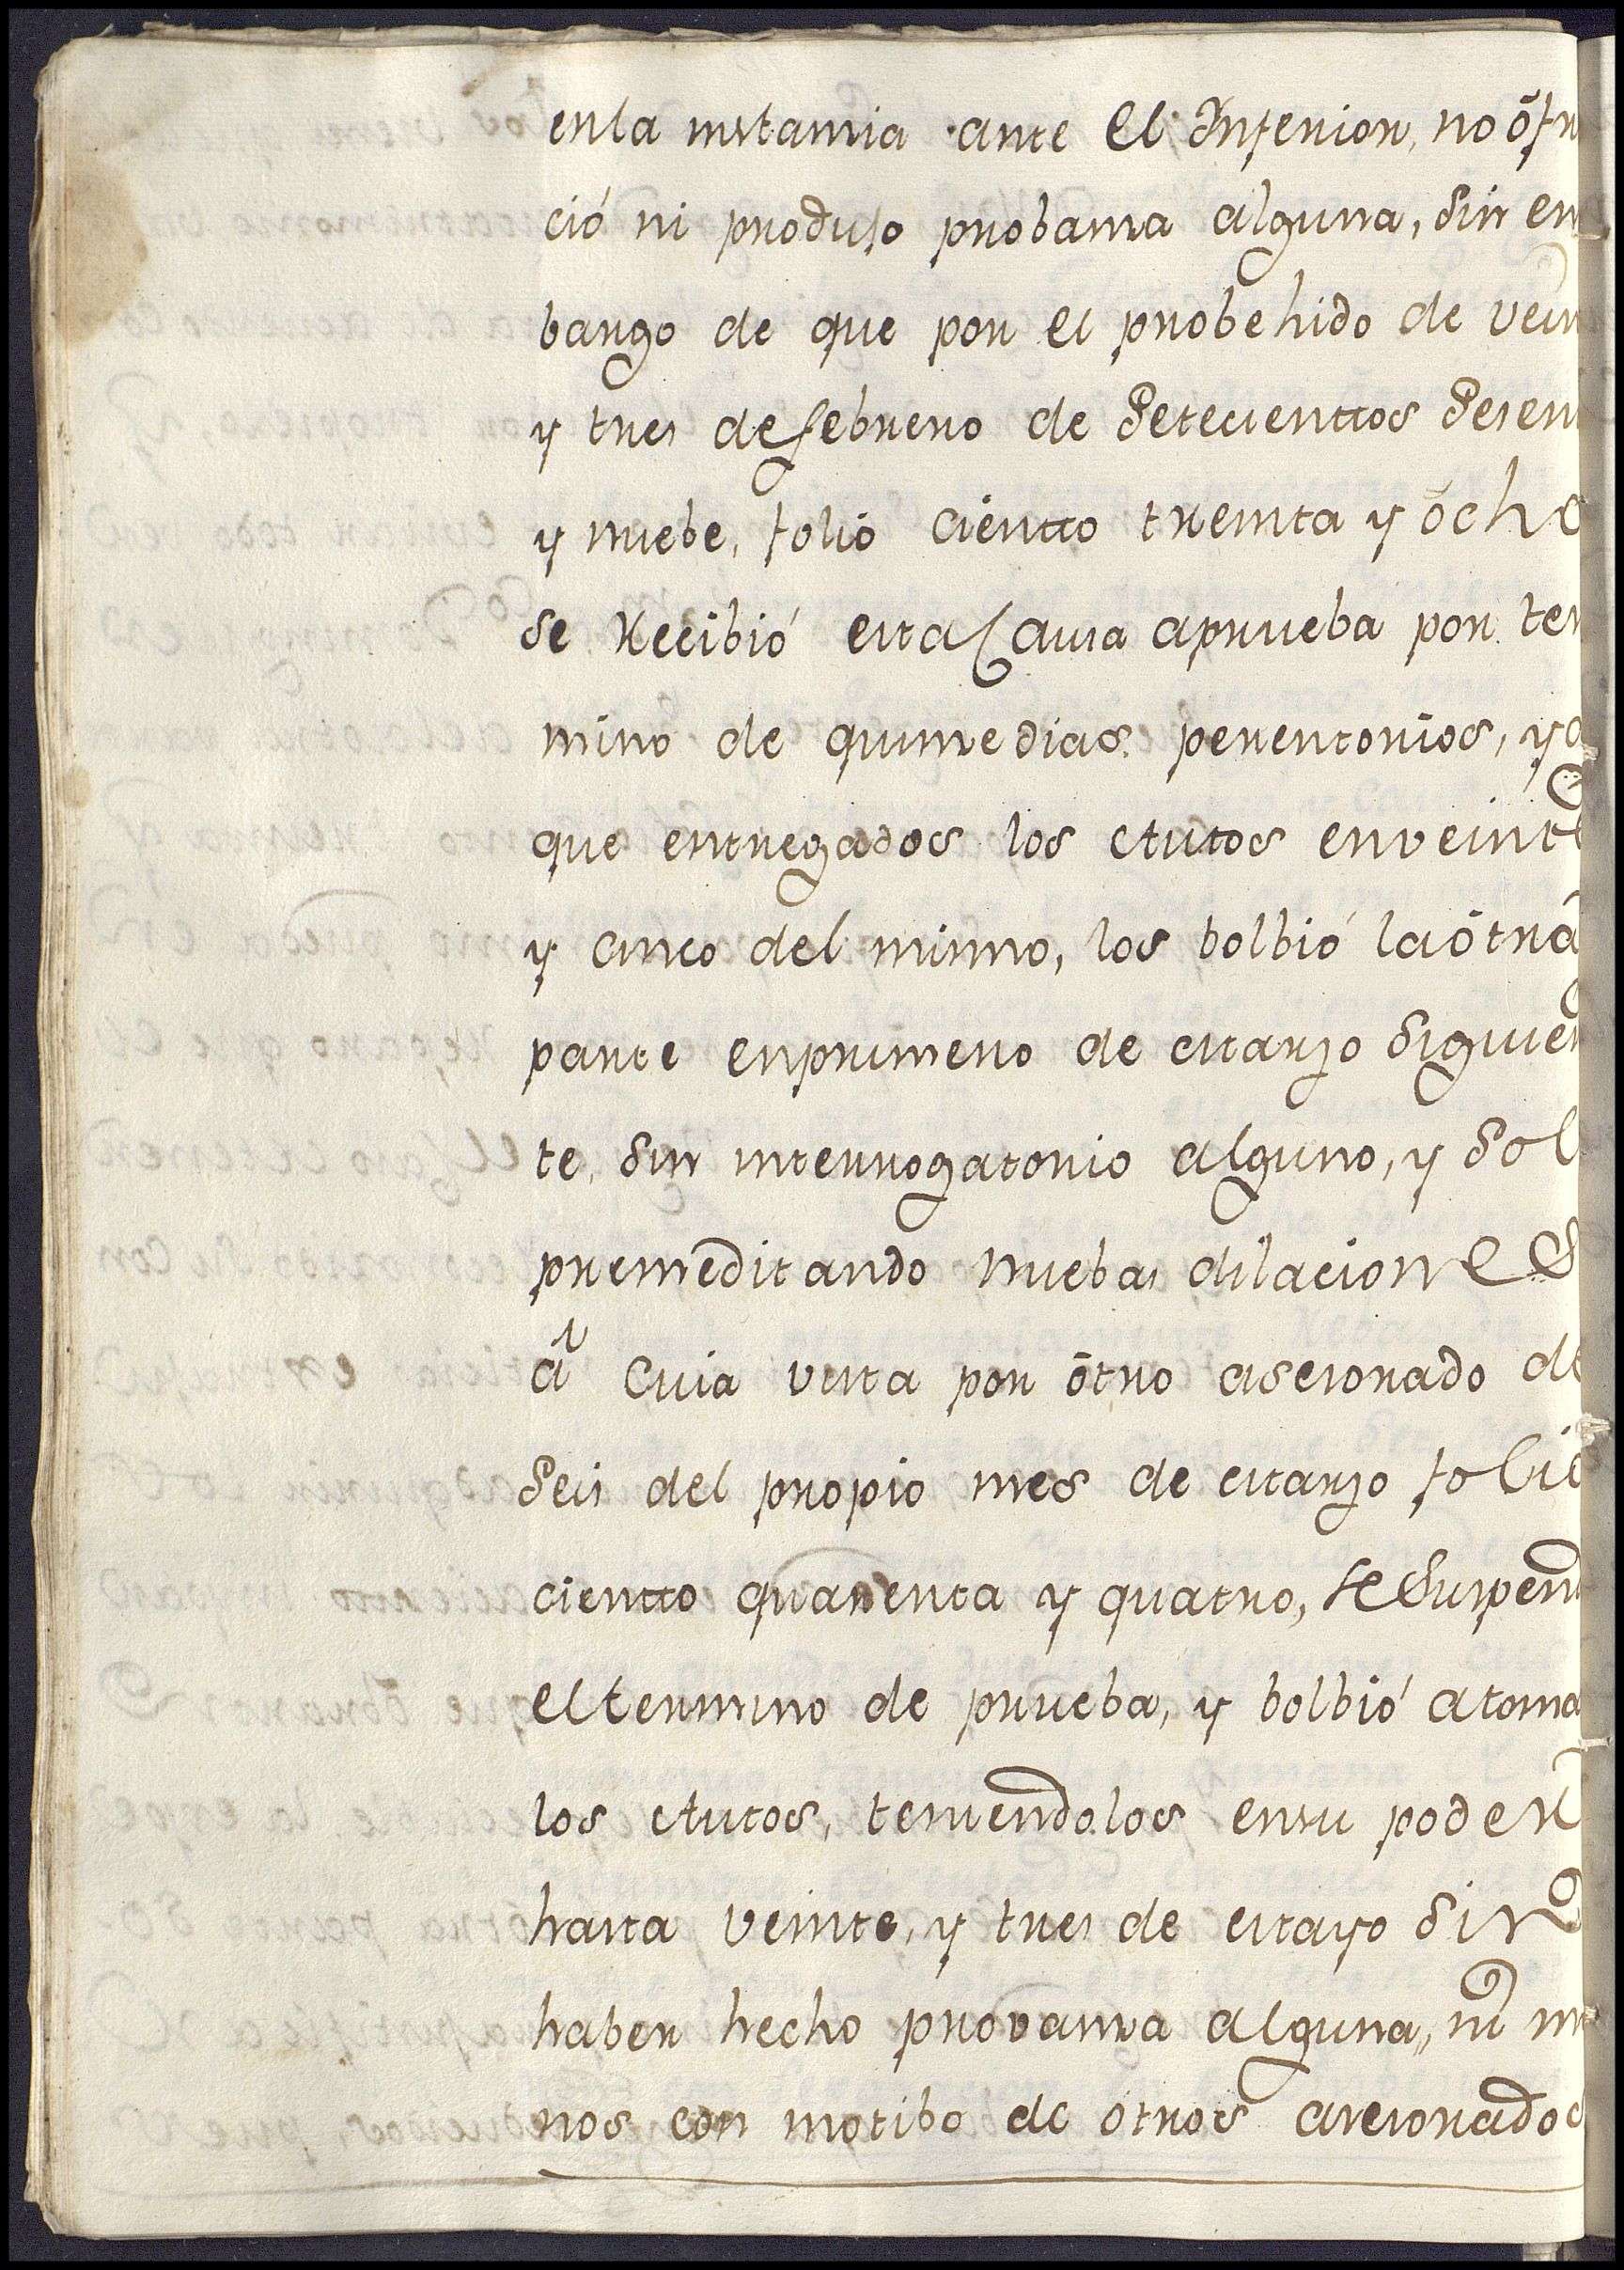 en la instancia ante el Inferior, no ofre
ció ni produjo probanza alguna, sin en
bargo de que por el probehido de vein
y tres de febrero de setecienttos sesen
y nuebe, folio cientto treinta y ocho
se Recibió esta Causa aprueba por ter
mino de quinze dias perentorios, y a
que entregados los Autos en veinte
y cinco del mismo, los bolbió la otra
parte en primero de Marzo siguien
te, sin interrogatorio alguno, y sol
premeditando nuebas dilaciones
â Cuia vista por otro asesorado de
seis del propio mes de Marzo folio
cientto quarenta y quatro, se suspend
el termino de prueba, y bolbió a toma
los Autos, teniendolos en su poder
hasta veinte, y tres de Mayo sin
haber hecho provanza alguna, ni m
nos con motibo de otros asesorados